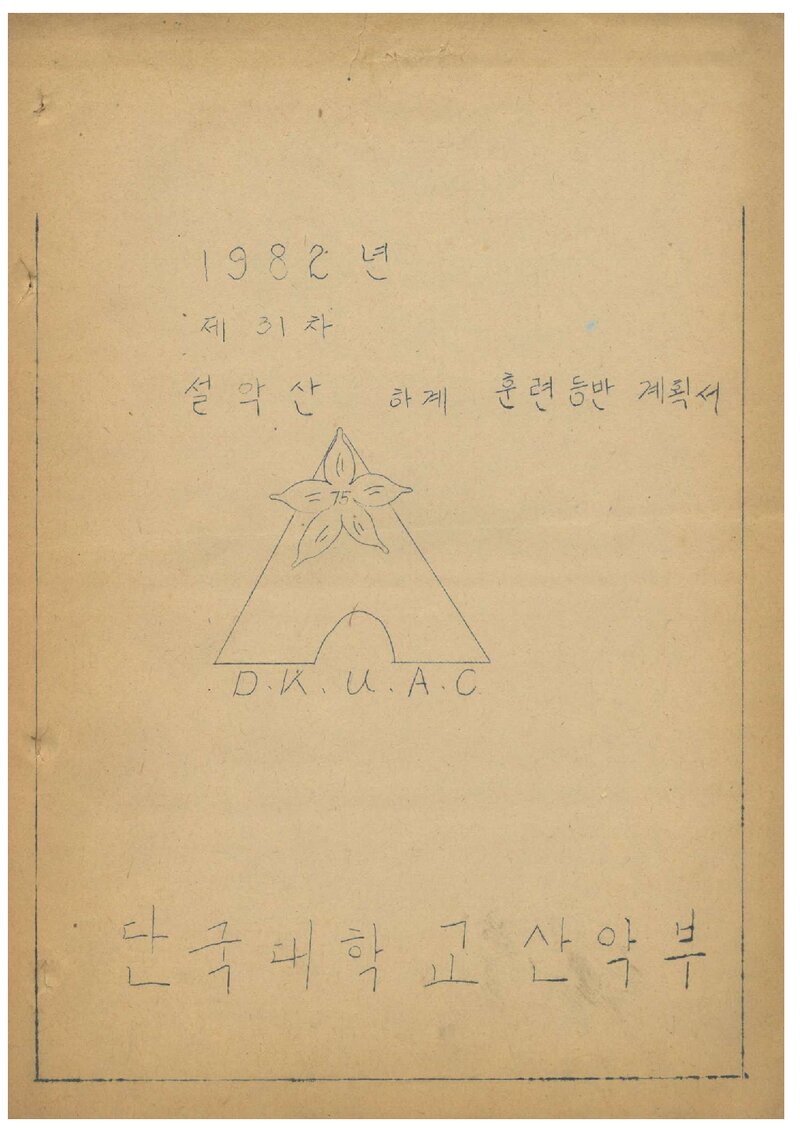 1982 년
제 31 차
설악산 하계 훈련등반 계획서
75
D.K.U.A.C
단국대학교 산악부